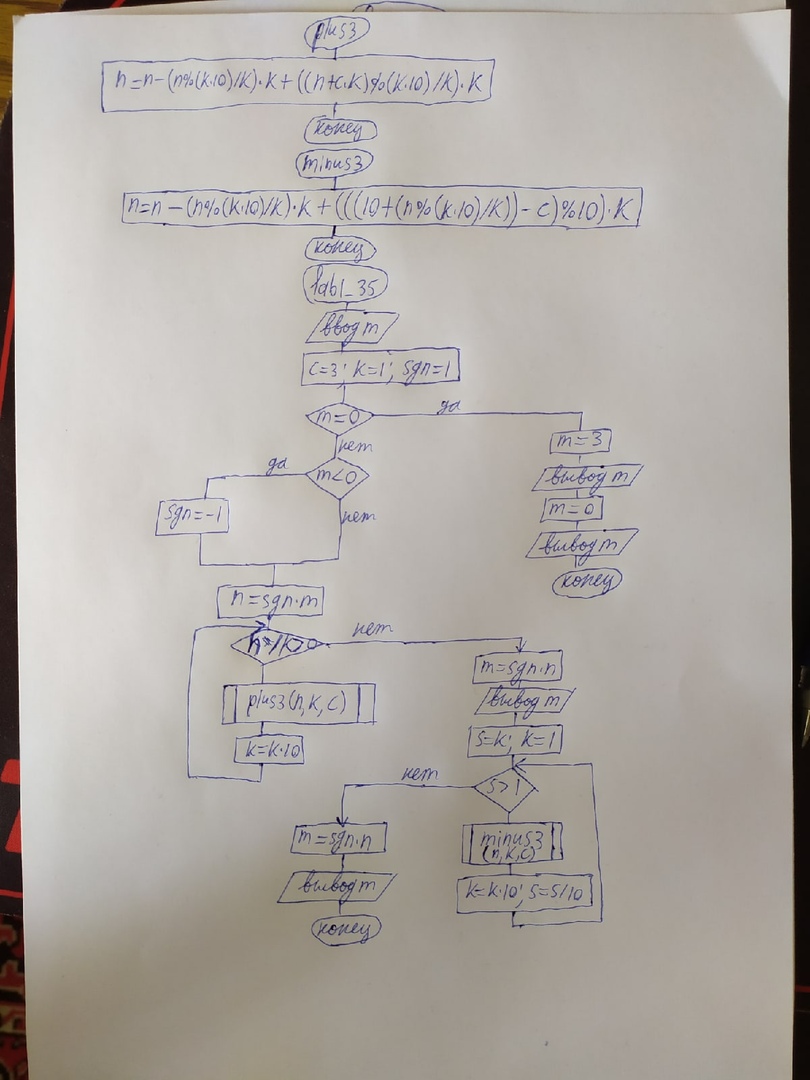 plus3
n=n-(n%(k·10)/k)·k+((n+c·k)%(k·10)/k)·k
конец
minus3
n=n-(n%(k·10)/k)·k+(((10+(n%(k·10)/k))-c)%10)·k
конец
lab1_35
ввод m
c=3; k=1; sgn=1
m=0
да
нет
m=3
вывод m
m=0
вывод m
конец
m<0
да
нет
sgn=-1
n=sgn·m
нет
plus3(n,k,c)
k=k·10
m=sgn·n
вывод m
s=k; k=1
s>1
нет
minus3
(n,k,c)
k=k·10; s=s/10
m=sgn·n
вывод m
конец